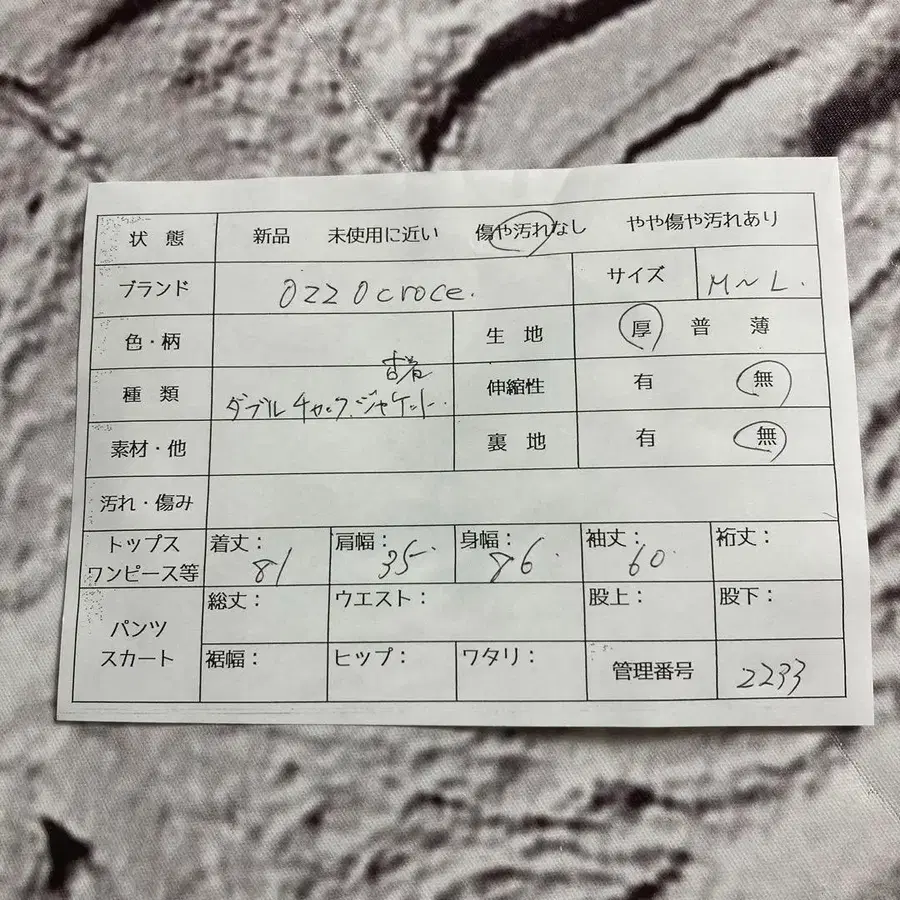 状態 新品 未使用に近い 傷や汚れなし やや傷や汚れあり
ブランド OZZOcroce. サイズ M~L.
色・柄 生地 厚 普 薄
古着
種類 ダブルチャックジャケット. 伸縮性 有 無
素材・他 裏地 有 無
汚れ・傷み
トップス ワンピース等 着丈: 81 肩幅: 35. 身幅: 86. 袖丈: 60. 裄丈:
パンツ スカート 総丈: ウエスト: 股上: 股下:
裾幅: ヒップ: ワタリ: 管理番号 2233